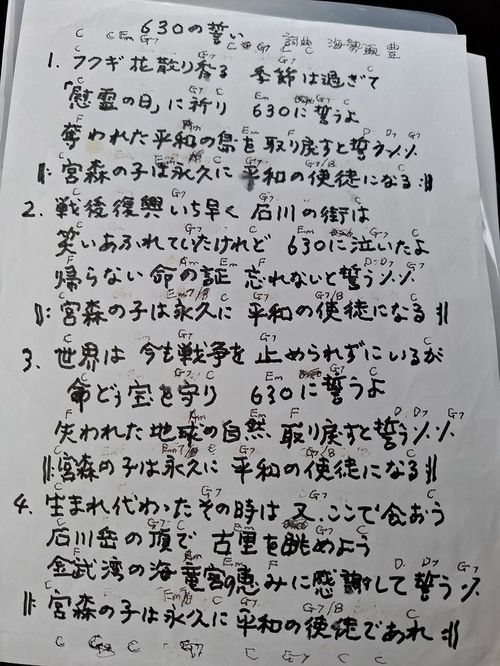 630の誓い
C C Em G7 C G7 C 詞曲 海勢頭 豊
1. フクギ花散り香る 季節は過ぎて
「慰霊の日」に祈り 630に誓うよ
奪われた平和の島を 取り戻すと誓う〃
‖: 宮森の子は永久に 平和の使徒になる :‖
2. 戦後復興いち早く 石川の街は
笑いあふれていたけれど 630に泣いたよ
帰らない命の証 忘れないと誓う〃
‖: 宮森の子は永久に 平和の使徒になる :‖
3. 世界は今も戦争を 止められずにいるが
命どぅ宝を守り 630に誓うよ
失われた地球の自然 取り戻すと誓う〃
‖: 宮森の子は永久に 平和の使徒になる :‖
4. 生まれ代わったその時は 又、ここで会おう
石川岳の頂で 古里を眺めよう
金武湾の海竜宮の恵みに感謝して誓う〃
‖: 宮森の子は永久に 平和の使徒であれ :‖